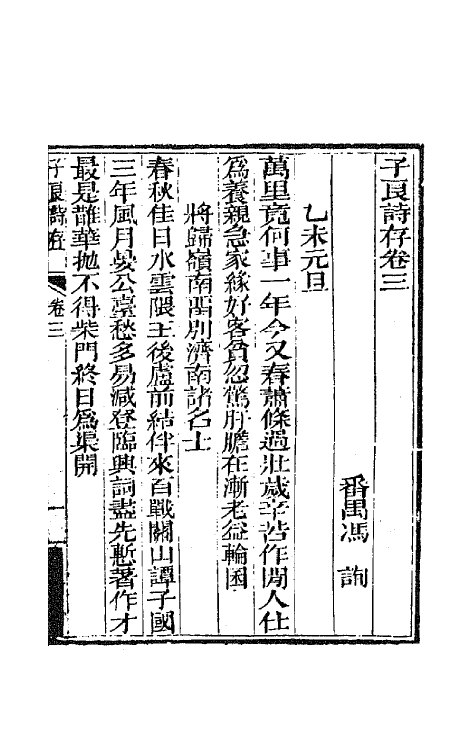 子良詩存卷三
番禺馮詢
乙未元旦
萬里竟何事一年今又春蕭條過壯歲辛苦作閒人仕
爲養親急家緣好客貧忽驚肝膽在漸老益輪囷
將歸嶺南留別濟南諸名士
春秋佳日水雲隈王後盧前結伴來百戰關山譚子國
三年風月晏公臺愁多易減登臨興詞盡先慙著作才
最是鵲華拋不得柴門終日爲渠開
子良詩存
卷三
一